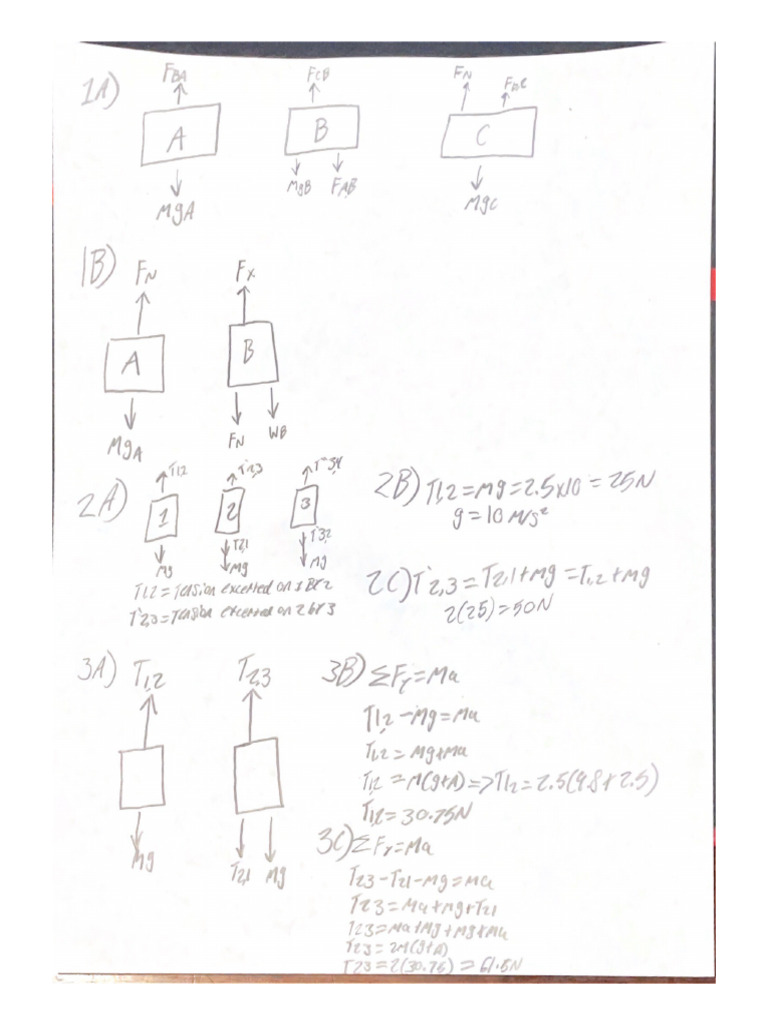 1A)
FBA
A
MgA
FCB
B
MgB FAB
FN
C
MgC
1B)
FN
A
MgA
Fx
B
FN WB
2A)
T1,2
1
Mg
T2,3
2
T2,1
Mg
T3,4
3
T3,2
Mg
T1,2 = Tension on 1 BY 2
T2,3 = Tension on 2 BY 3
2B) T1,2 = Mg = 2.5x10 = 25N
g = 10 M/s²
2C) T2,3 = T2,1 + mg = T1,2 + mg
2(25) = 50N
3A) T1,2
Mg
T2,3
T2,1 Mg
3B) ΣFY = Ma
T1,2 - Mg = Ma
T1,2 = Mg + Ma
T1,2 = M(g+A) => T1,2 = 2.5(9.8 + 2.5)
T1,2 = 30.75N
3C) ΣFY = Ma
T23 - T21 - Mg = Ma
T23 = Ma + Mg + T21
T23 = Ma + Mg + Mg + Ma
T23 = 2M(g+A)
T23 = 2(30.75) = 61.5N